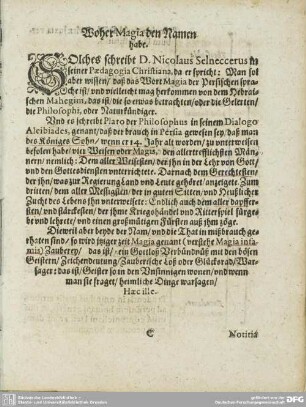 Woher Magia den Namen
habe.
SOlches schreibt D. Nicolaus Selneccerus in
seiner Pædagogia Christiana, da er spricht: Man sol
aber wissen/ daß das Wort Magia der Persischen spra-
che ist/ vnd vielleicht mag herkommen von dem Hebrai-
schen Mahegim, das ist/ die so etwas betrachten/ oder die Gelerten/
die Philosophi, oder Naturkündiger.
Vnd es schreibt Plato der Philosophus in seinem Dialogo
Alcibiades, genant/ daß der brauch in Persia gewesen sey/ daß man
des Königes Sohn/ wenn er 14. Jahr alt worden/ zu vnterweisen
befolen habe/ vier Weisen oder Magis, den allertrefflichsten Män-
nern/ nemlich: Dem aller Weisesten/ der ihn in der Lehr von Gott/
vnd den Gottesdiensten vnterrichtete. Darnach dem Gerechtesten/
der ihn/ was zur Regierung Land vnd Leute gehöret/ anzeigte. Zum
dritten/ dem aller Messigsten/ der in guten Sitten/ vnd
Zucht des Lebens ihn vnterweisete: Endlich auch dem aller dapffer-
sten/ vnd stärckesten/ der ihme Kriegshändel vnd Ritterspiel fürge-
be vnd lehrete/ vnd einen großmütigen Fürsten auß ihm zöge.
Dieweil aber beyde der Nam/ vnd die That in mißbrauch ge-
rathen sind/ so wird jtziger zeit Magia genant (verstehe Magia infa-
mis) Zauberey/ das ist/ ein Gottloß Verbündnüß mit den bösen
Geistern/ Zeichendeutung/ Zauberische Loß oder Glücksrad/ War-
sager: das ist/ Geister so in den Vnsinnigen wonen/ vnd wenn
man sie fraget/ heimliche Dinge warsagen/
Hæc ille.
C Notitia
DFG